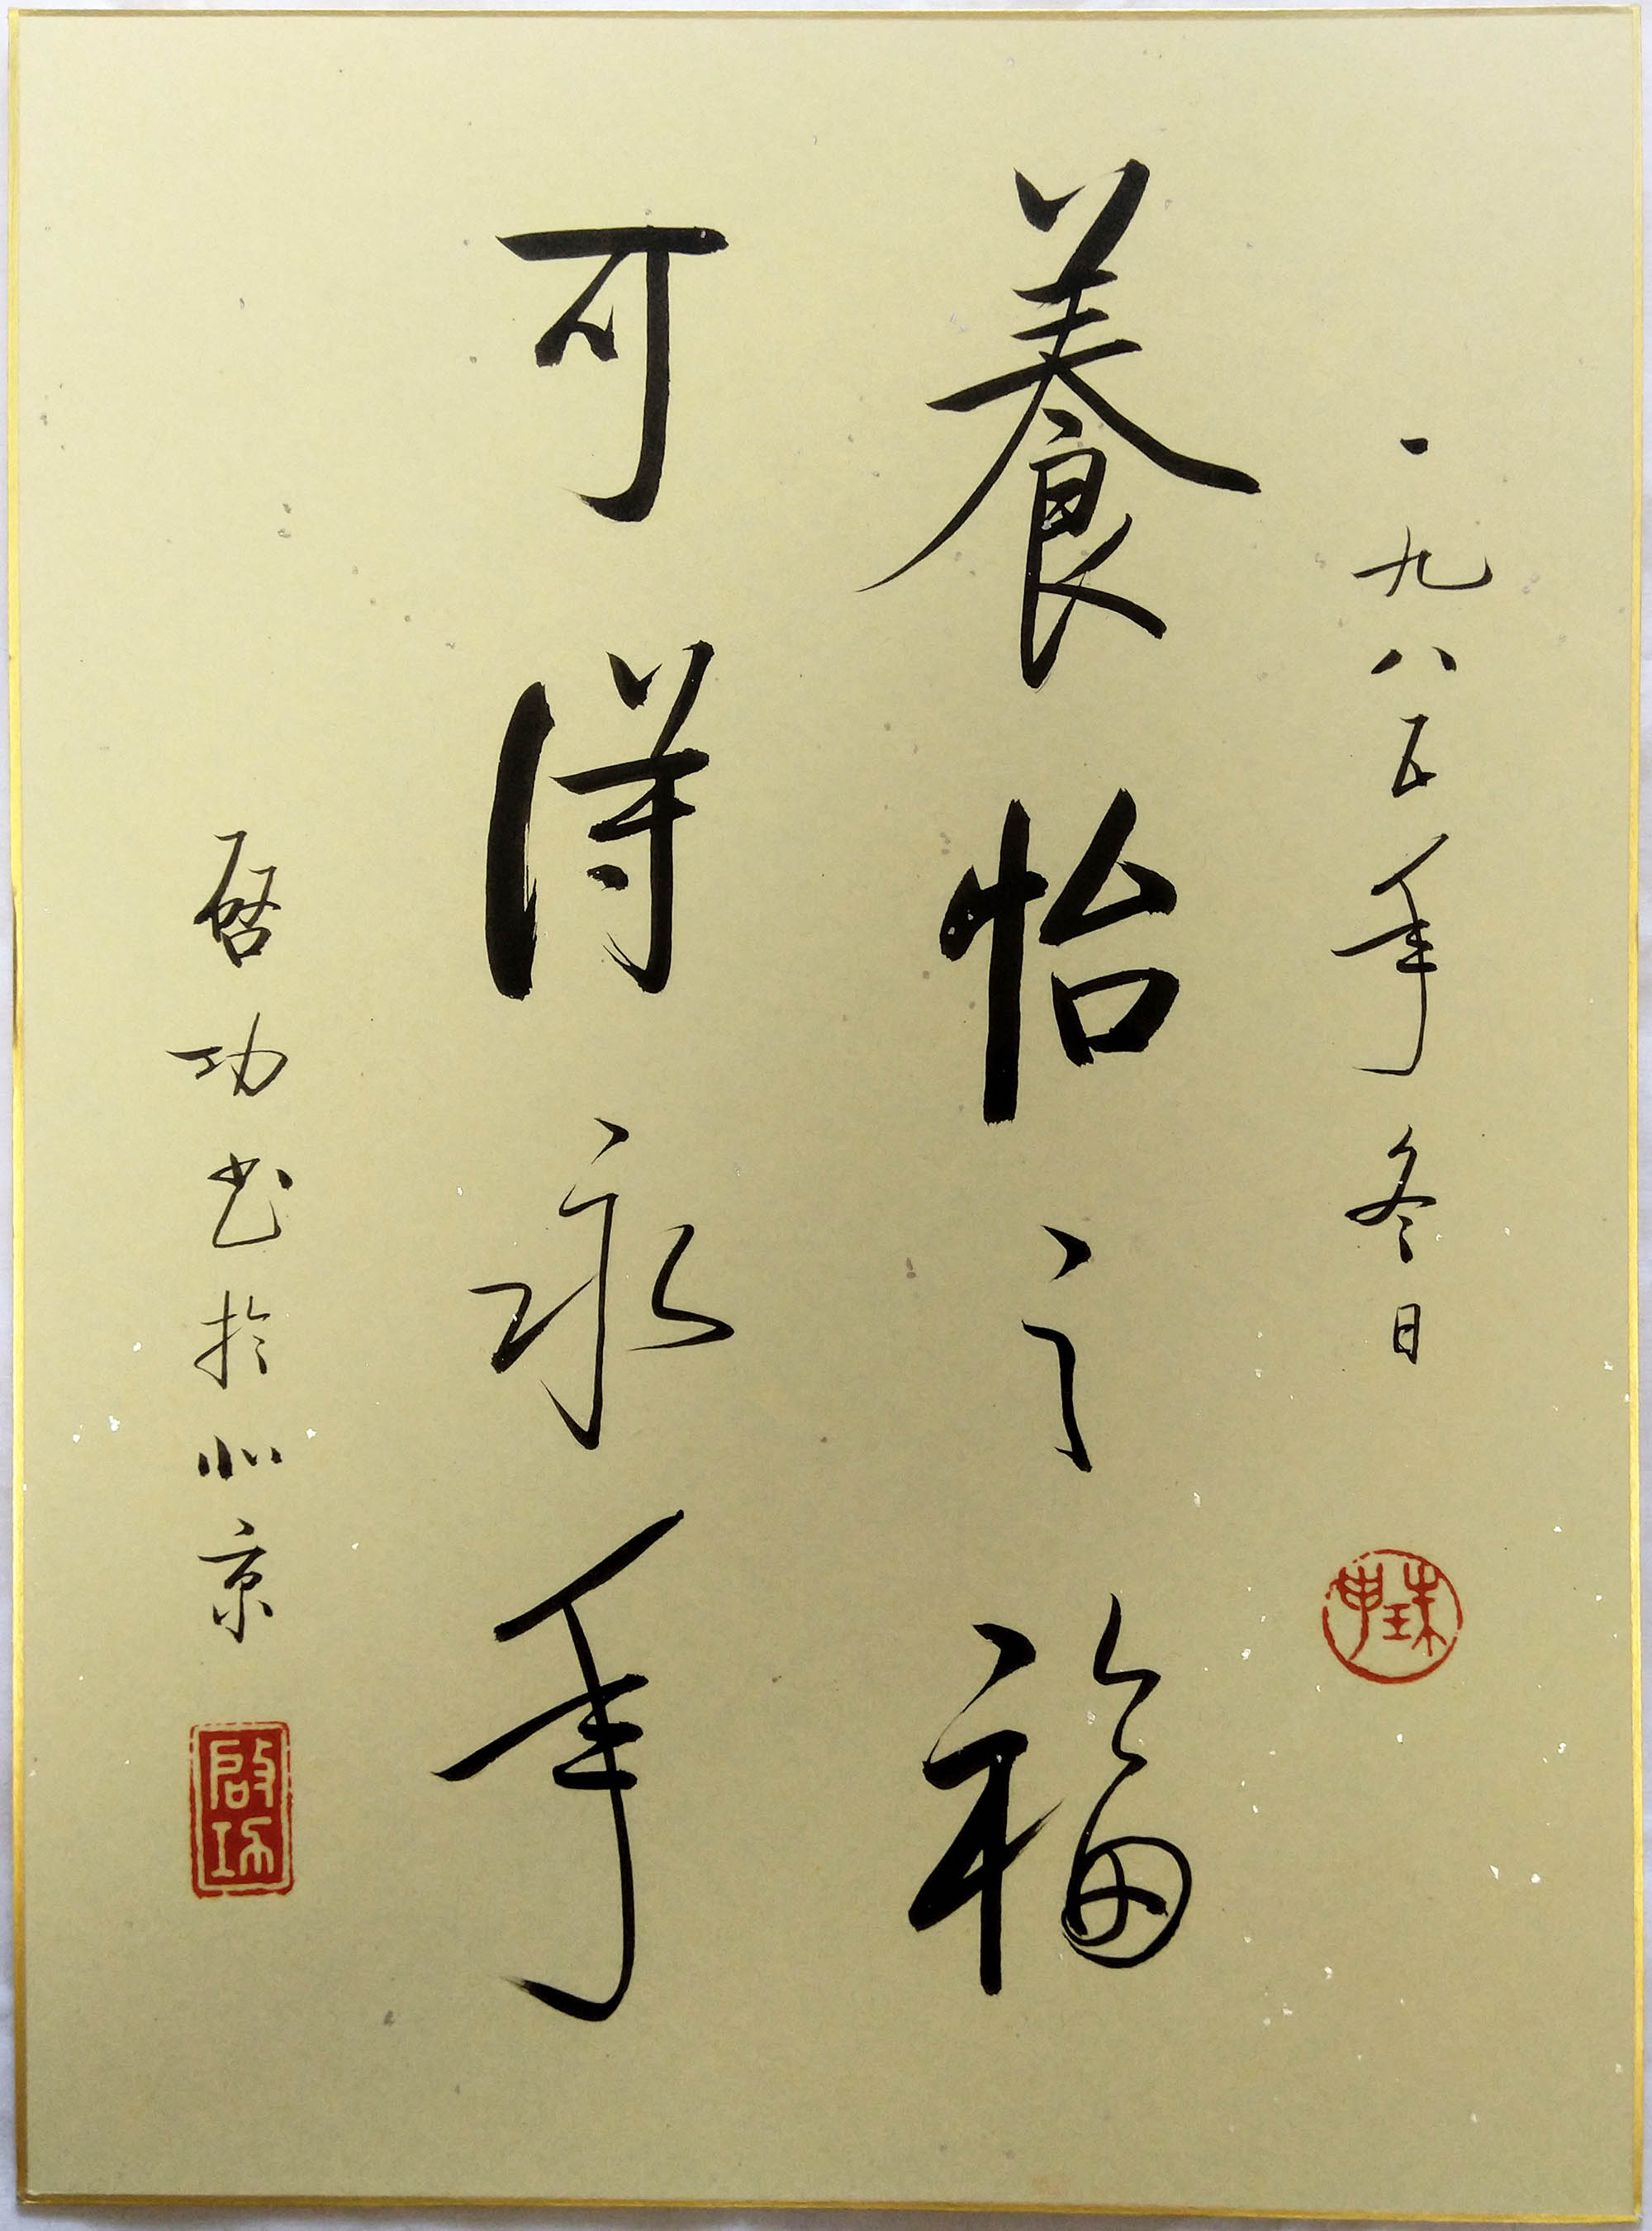 一九八五年冬日
養怡之福
可得永年
啓功书於北京
啟功